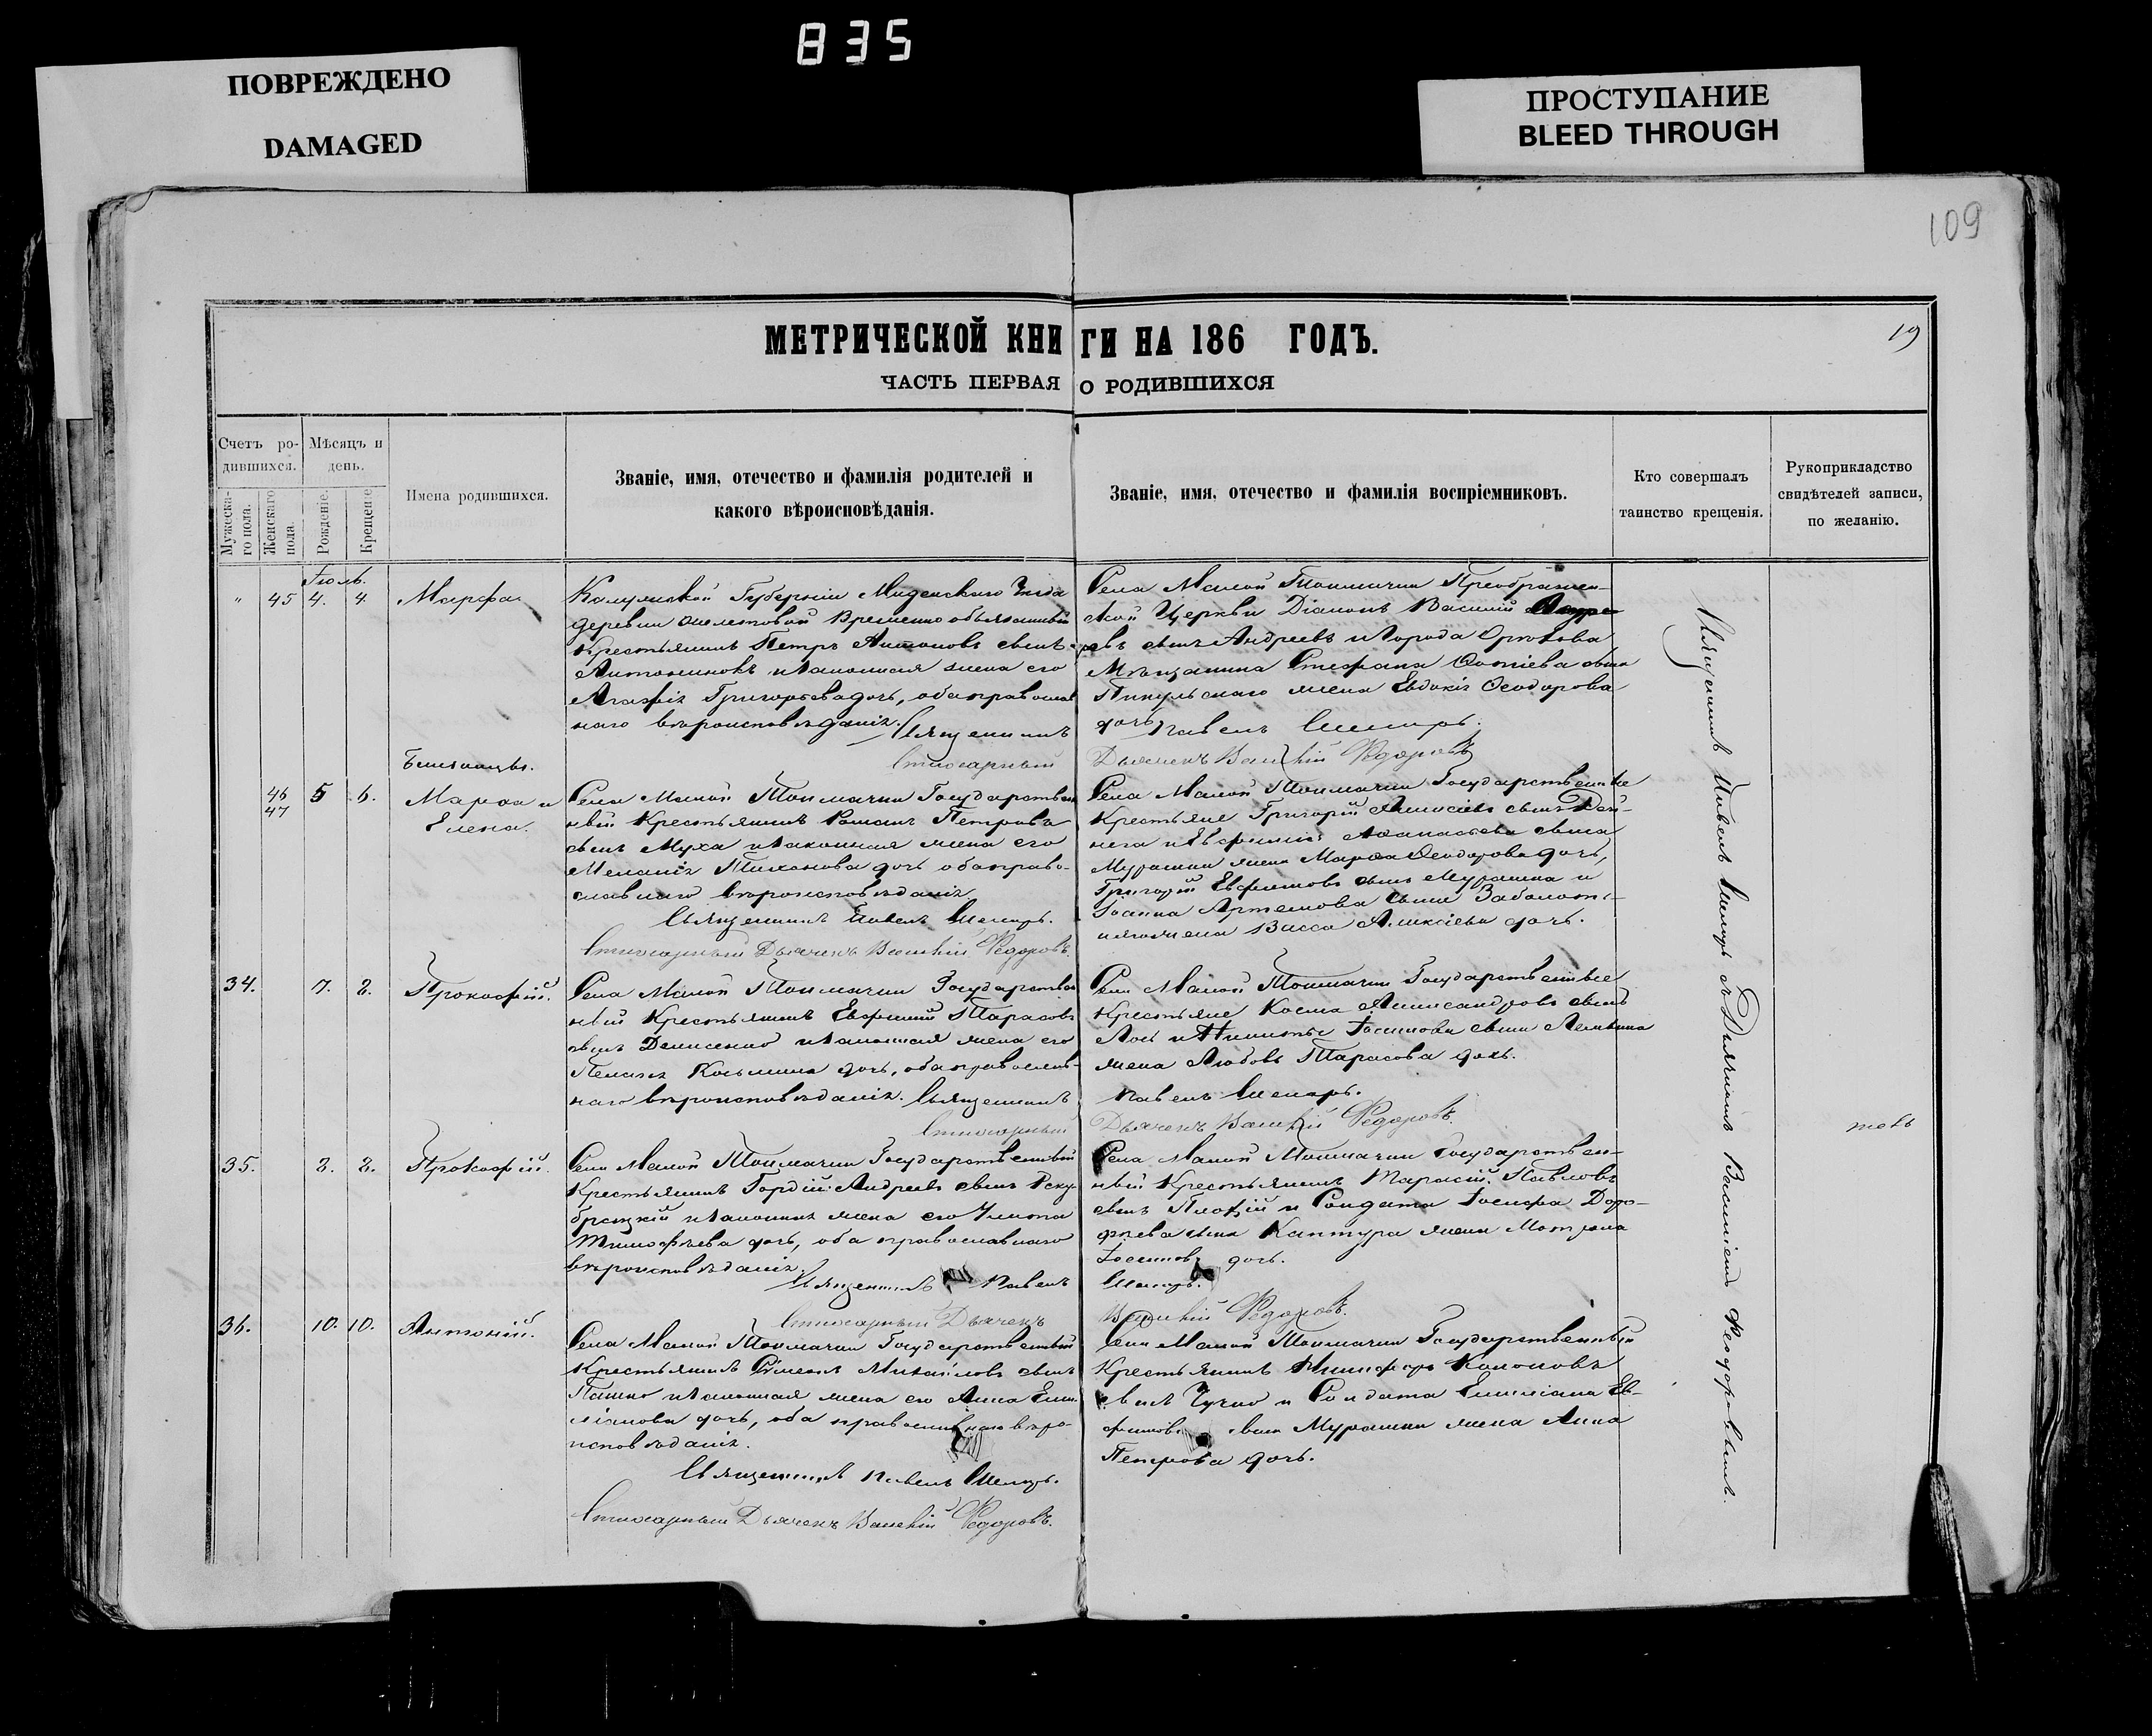 835
ПОВРЕЖДЕНО
DAMAGED
ПРОСТУПАНИЕ
BLEED THROUGH
109
МЕТРИЧЕСКОЙ КНИГИ НА 186 ГОДЪ.
19
ЧАСТЬ ПЕРВАЯ О РОДИВШИХСЯ
Счетъ ро-
дившихся.
Мужеска-
го пола.
Женскаго
пола.
Мѣсяцъ и
день.
Рожденіе.
Крещеніе
Имена родившихся.
Званіе, имя, отечество и фамилія родителей и
какого вѣроисповѣданія.
Званіе, имя, отечество и фамилія воспріемниковъ.
Кто совершалъ
таинство крещенія.
Рукоприкладство
свидѣтелей записи,
по желанію.
Іюль.
" 45 4. 4. Марфа
Калужской Губерніи Уѣзда
деревни Временно обязанный
Крестьянинъ Петръ Антоновъ сынъ
и законная жена его
Агафія Григорьева дочь, оба православ
наго вѣроисповѣданія. Священникъ
Стихарный
Села Малой Токмачки Преображен-
ской Церкви Діаконъ Василий
евъ сынъ Андреевъ и Города Орѣхова
Мѣщанина Стефана сына
жена Евдокія Ѳеодорова
дочь Павелъ
Дьячекъ Василій Ѳедоровъ
Близнецы.
46
47
5 6. Марѳа и
Елена.
Села Малой Токмачки Государствен
ный Крестьянинъ Романъ Петровъ
сынъ Муха и законная жена его
Меланія Тихонова дочь оба право-
славнаго вѣроисповѣданія
Священникъ Павелъ
Стихарный Дьячекъ Василій Ѳедоровъ.
Села Малой Токмачки Государственные
Крестьяне Григорій Алексіевъ сынъ
и Евфимія Аѳанасьева сына
Мурашки жена Марѳа Ѳеодорова дочь,
Григорій Евфимовъ сынъ Мурашка и
Іоанна Артемова сына Заболотн-
жена Васса Алексіева дочь.
34. 7. 8. Прокофій.
Села Малой Токмачки Государствен
ный Крестьянинъ Евфимій Тарасовъ
сынъ Денисенко и законная жена его
Пелагія Косьмина дочь, оба православ-
наго вѣроисповѣданія. Священникъ
Стихарный
Села Малой Токмачки Государственные
Крестьяне Косма Александровъ сынъ
и Никиты Іосифова сына
жена Любовь Тарасова дочь.
Павелъ
Дьячекъ Василій Ѳедоровъ.
35. 8. 8. Прокофій.
Села Малой Токмачки Государственный
Крестьянинъ Гордій Андреевъ сынъ Ску-
брецкій и законная жена его Улита
Тимофѣева дочь, оба православнаго
вѣроисповѣданія.
Священникъ Павелъ
Стихарный Дьячекъ
Села Малой Токмачки Государствен-
ный Крестьянинъ Тарасій Павловъ
сынъ и Солдата Іосифа Доро-
фѣева сына Кантура жена Матрона
Іосифова дочь.
Василій Ѳедоровъ.
36. 10. 10. Антоній.
Села Малой Токмачки Государственный
Крестьянинъ Симеонъ Михайловъ сынъ
Пашко и законная жена его Анна Еми-
ліанова дочь, оба православнаго вѣро-
исповѣданія.
Священникъ Павелъ
Стихарный Дьячекъ Василій Ѳедоровъ.
Села Малой Токмачки Государственный
Крестьянинъ Никифоръ Кононовъ
сынъ Чучко и Солдата Емиліана Ев-
фимова сына Мурашки жена Анна
Петрова дочь.
Священникъ Павелъ съ Дьячкомъ Василіемъ Ѳеодоровымъ.